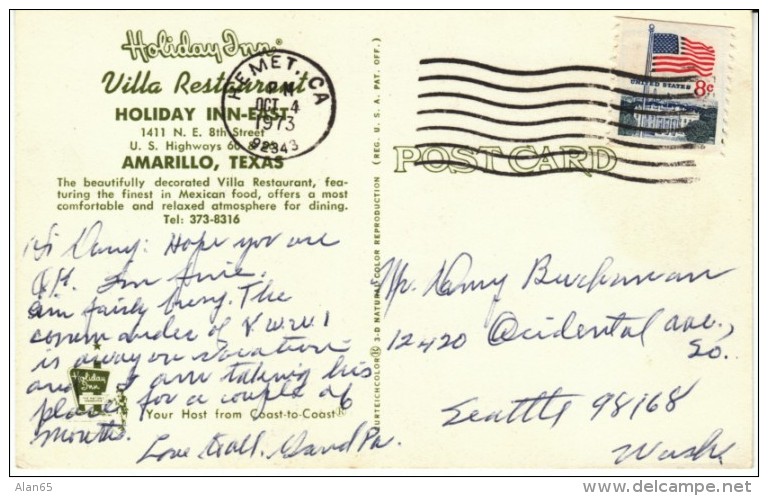 Holiday Inn®
Villa Restaurant
HOLIDAY INN-EAST
1411 N. E. 8th Street
U. S. Highways 60 & 66
AMARILLO, TEXAS
The beautifully decorated Villa Restaurant, fea-
turing the finest in Mexican food, offers a most
comfortable and relaxed atmosphere for dining.
Tel: 373-8316
HEMET, CA
PM
OCT 4
1973
92343
UNITED STATES 8c
POST CARD
CURTEICHCOLOR® 3-D NATURAL COLOR REPRODUCTION (REG. U. S. A. PAT. OFF.)
Hi Danny: Hope you are
O.K. I'm fine.
am fairly busy. The
commander of V.W.W.1
is away on vacation
and I am taking his
place for a couple of
months.
Love to all. Grand Pa.
Mr. Danny Buckman
12420 Occidental ave.,
So.
Seattle 98168
Wash
Holiday
Inn
Your Host from Coast-to-Coast®
Alan65
© delcampe.net